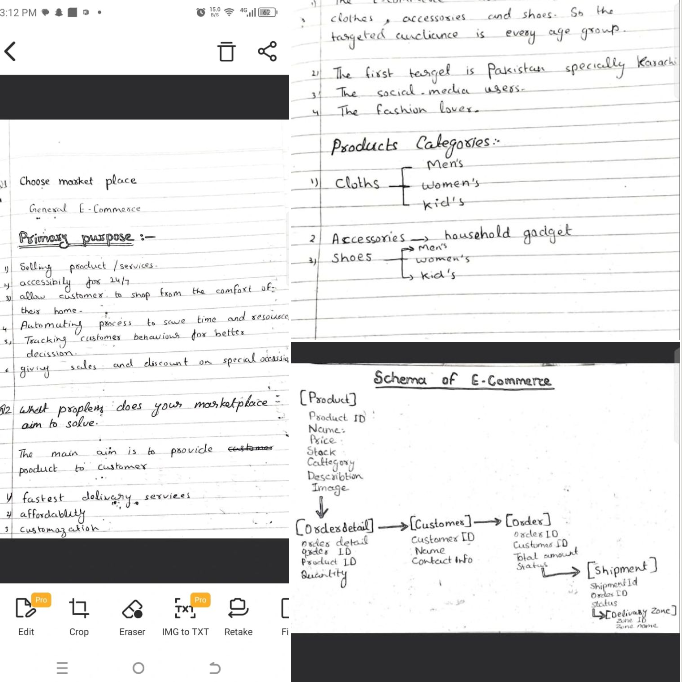 3:12 PM
15.0
4G
Choose market place
General E-Commerce
Primary purpose :-
1) Selling product / services.
accessibily for 24/7
allow customer to shop from the comfort of
their home.
4 Automating process to save time and resource
5, Tracking customer behaviour for better
decission.
6 giving sales and discount on special
Q2 what problem does your marketplace
aim to solve.
The main aim is to provide customer
product to customer
fastest delivary services
affordablity
3 customazation
Pro
Pro
Edit
Crop
Eraser
IMG to TXT
Retake
Fi
clothes, accessories and shoes. So the
targeted audiance is every age group.
2) The first target is Pakistan specially Karachi
3) The social-media users.
4 The fashion lover.
Products Categories:-
1) Cloths
Men's
women's
kid's
2 Accessories → household gadget
3) Shoes
Men's
women's
kid's
Schema of E-Commerce
[Product]
Product ID
Name:
Price
Stock
Cattegory
Describtion
Image
[Orderdetail] → [Customer] → [Order]
order detail
order ID
Product ID
Quantity
Customer ID
Name
Contact Info
Order ID
Customer ID
Total amount
Status
[Shipment]
Shipment Id
Order ID
status
[Delivary Zone]
Zone ID
Zone name